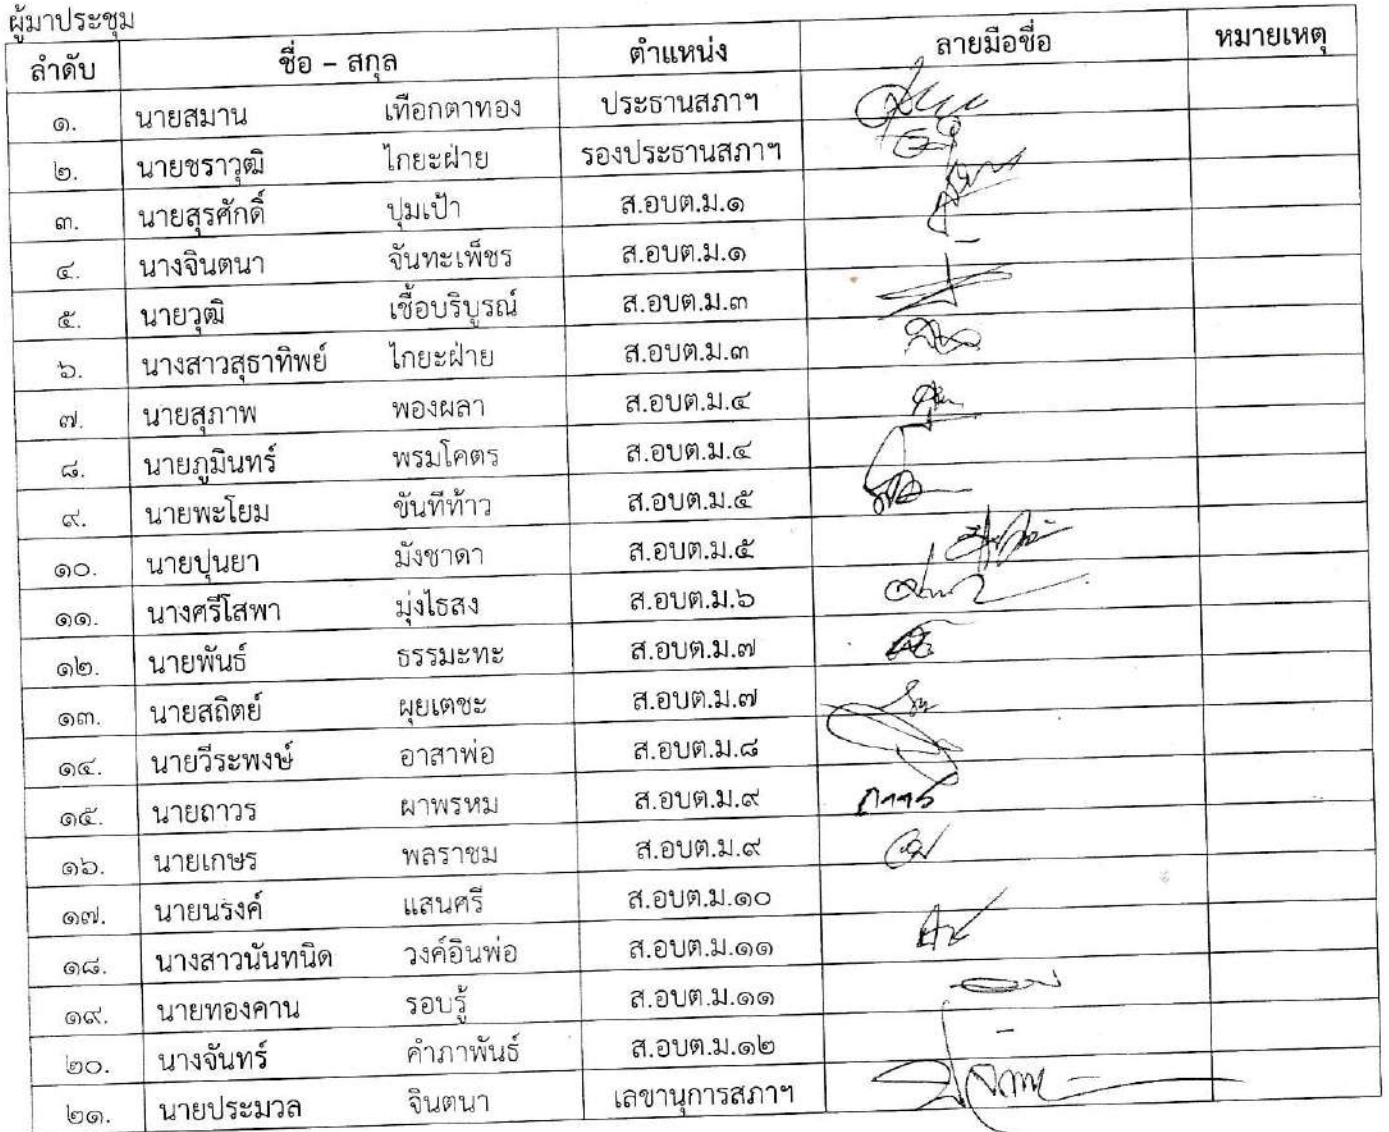 ผู้มาประชุม
ลำดับ ชื่อ - สกุล ตำแหน่ง ลายมือชื่อ หมายเหตุ
๑. นายสมาน เทือกตาทอง ประธานสภาฯ
๒. นายชราวุฒิ ไกยะฝ่าย รองประธานสภาฯ
๓. นายสุรศักดิ์ ปุมเป้า ส.อบต.ม.๑
๔. นางจินตนา จันทะเพ็ชร ส.อบต.ม.๑ -
๕. นายวุฒิ เชื้อบริบูรณ์ ส.อบต.ม.๓
๖. นางสาวสุธาทิพย์ ไกยะฝ่าย ส.อบต.ม.๓
๗. นายสุภาพ พองผลา ส.อบต.ม.๔
๘. นายภูมินทร์ พรมโคตร ส.อบต.ม.๔
๙. นายพะโยม ขันทีท้าว ส.อบต.ม.๕
๑๐. นายปุนยา มังชาดา ส.อบต.ม.๕
๑๑. นางศรีโสพา มุ่งไธสง ส.อบต.ม.๖
๑๒. นายพันธ์ ธรรมะทะ ส.อบต.ม.๗
๑๓. นายสถิตย์ ผุยเตชะ ส.อบต.ม.๗
๑๔. นายวีระพงษ์ อาสาพ่อ ส.อบต.ม.๘
๑๕. นายถาวร ผาพรหม ส.อบต.ม.๙ ถาวร
๑๖. นายเกษร พลราชม ส.อบต.ม.๙
๑๗. นายนรงค์ แสนศรี ส.อบต.ม.๑๐
๑๘. นางสาวนันทนิด วงค์อินพ่อ ส.อบต.ม.๑๑
๑๙. นายทองคาน รอบรู้ ส.อบต.ม.๑๑
๒๐. นางจันทร์ คำภาพันธ์ ส.อบต.ม.๑๒ -
๒๑. นายประมวล จินตนา เลขานุการสภาฯ